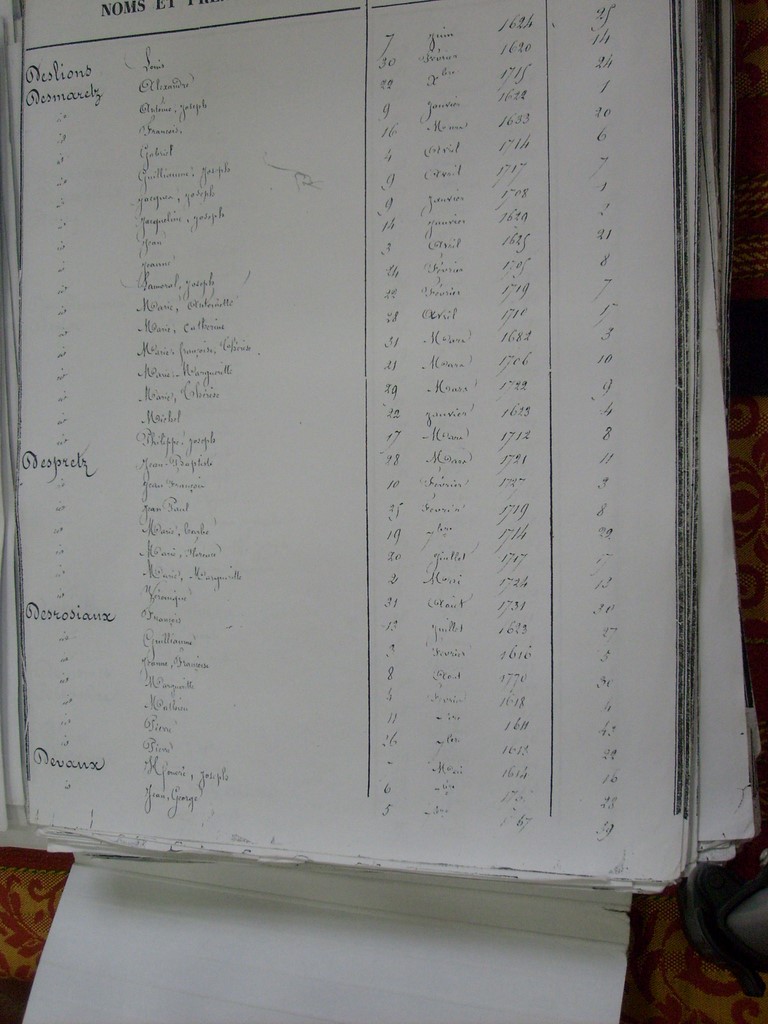 NOMS ET
Deslions Louis 7 juin 1624 25
Desmaretz Alexandre 30 Février 1620 14
id Antoine, joseph 22 Xbre 1715 24
id François 9 janvier 1622 1
id Gabriel 16 Mars 1633 20
id Guilliaume, joseph 4 Avril 1714 6
id jacques, joseph 9 Avril 1717 7
id jacqueline, joseph 9 janvier 1708 1
id Jean 14 janvier 1629 2
id jeanne 2 Avril 1625 21
id Lamoral, joseph 24 Février 1705 8
id Marie, Antoinette 22 Février 1719 7
id Marie, Catherine 28 Avril 1710 17
id Marie, françoise, Thérèse 31 Mars 1682 3
id Marie, Marguerite 21 Mars 1706 10
id Marie, Thérèse 29 Mars 1722 9
id Michel 22 janvier 1623 4
id Philippe, joseph 17 Mars 1712 8
Despretz Jean Baptiste 28 Mars 1721 11
id Jean François 10 Février 1727 3
id Jean Paul 25 Février 1719 8
id Marie, 19 7bre 1714 22
id Marie, Florence 20 juillet 1717 17
id Marie, Marguerite 2 Mai 1724 13
id Véronique 31 Août 1731
Desrosiaux François 13 juillet 1623 27
id Guilliaume 3 Février 1616 5
id Jeanne, Françoise 8 Août 1770 30
id Marguerite 4 Février 1618 4
id Mathieu 11 1611 43
id Pierre 26 7bre 1613 22
id Pierre Mai 1614 16
Devaux joseph 6 28
id Jean, George 5 1767 29